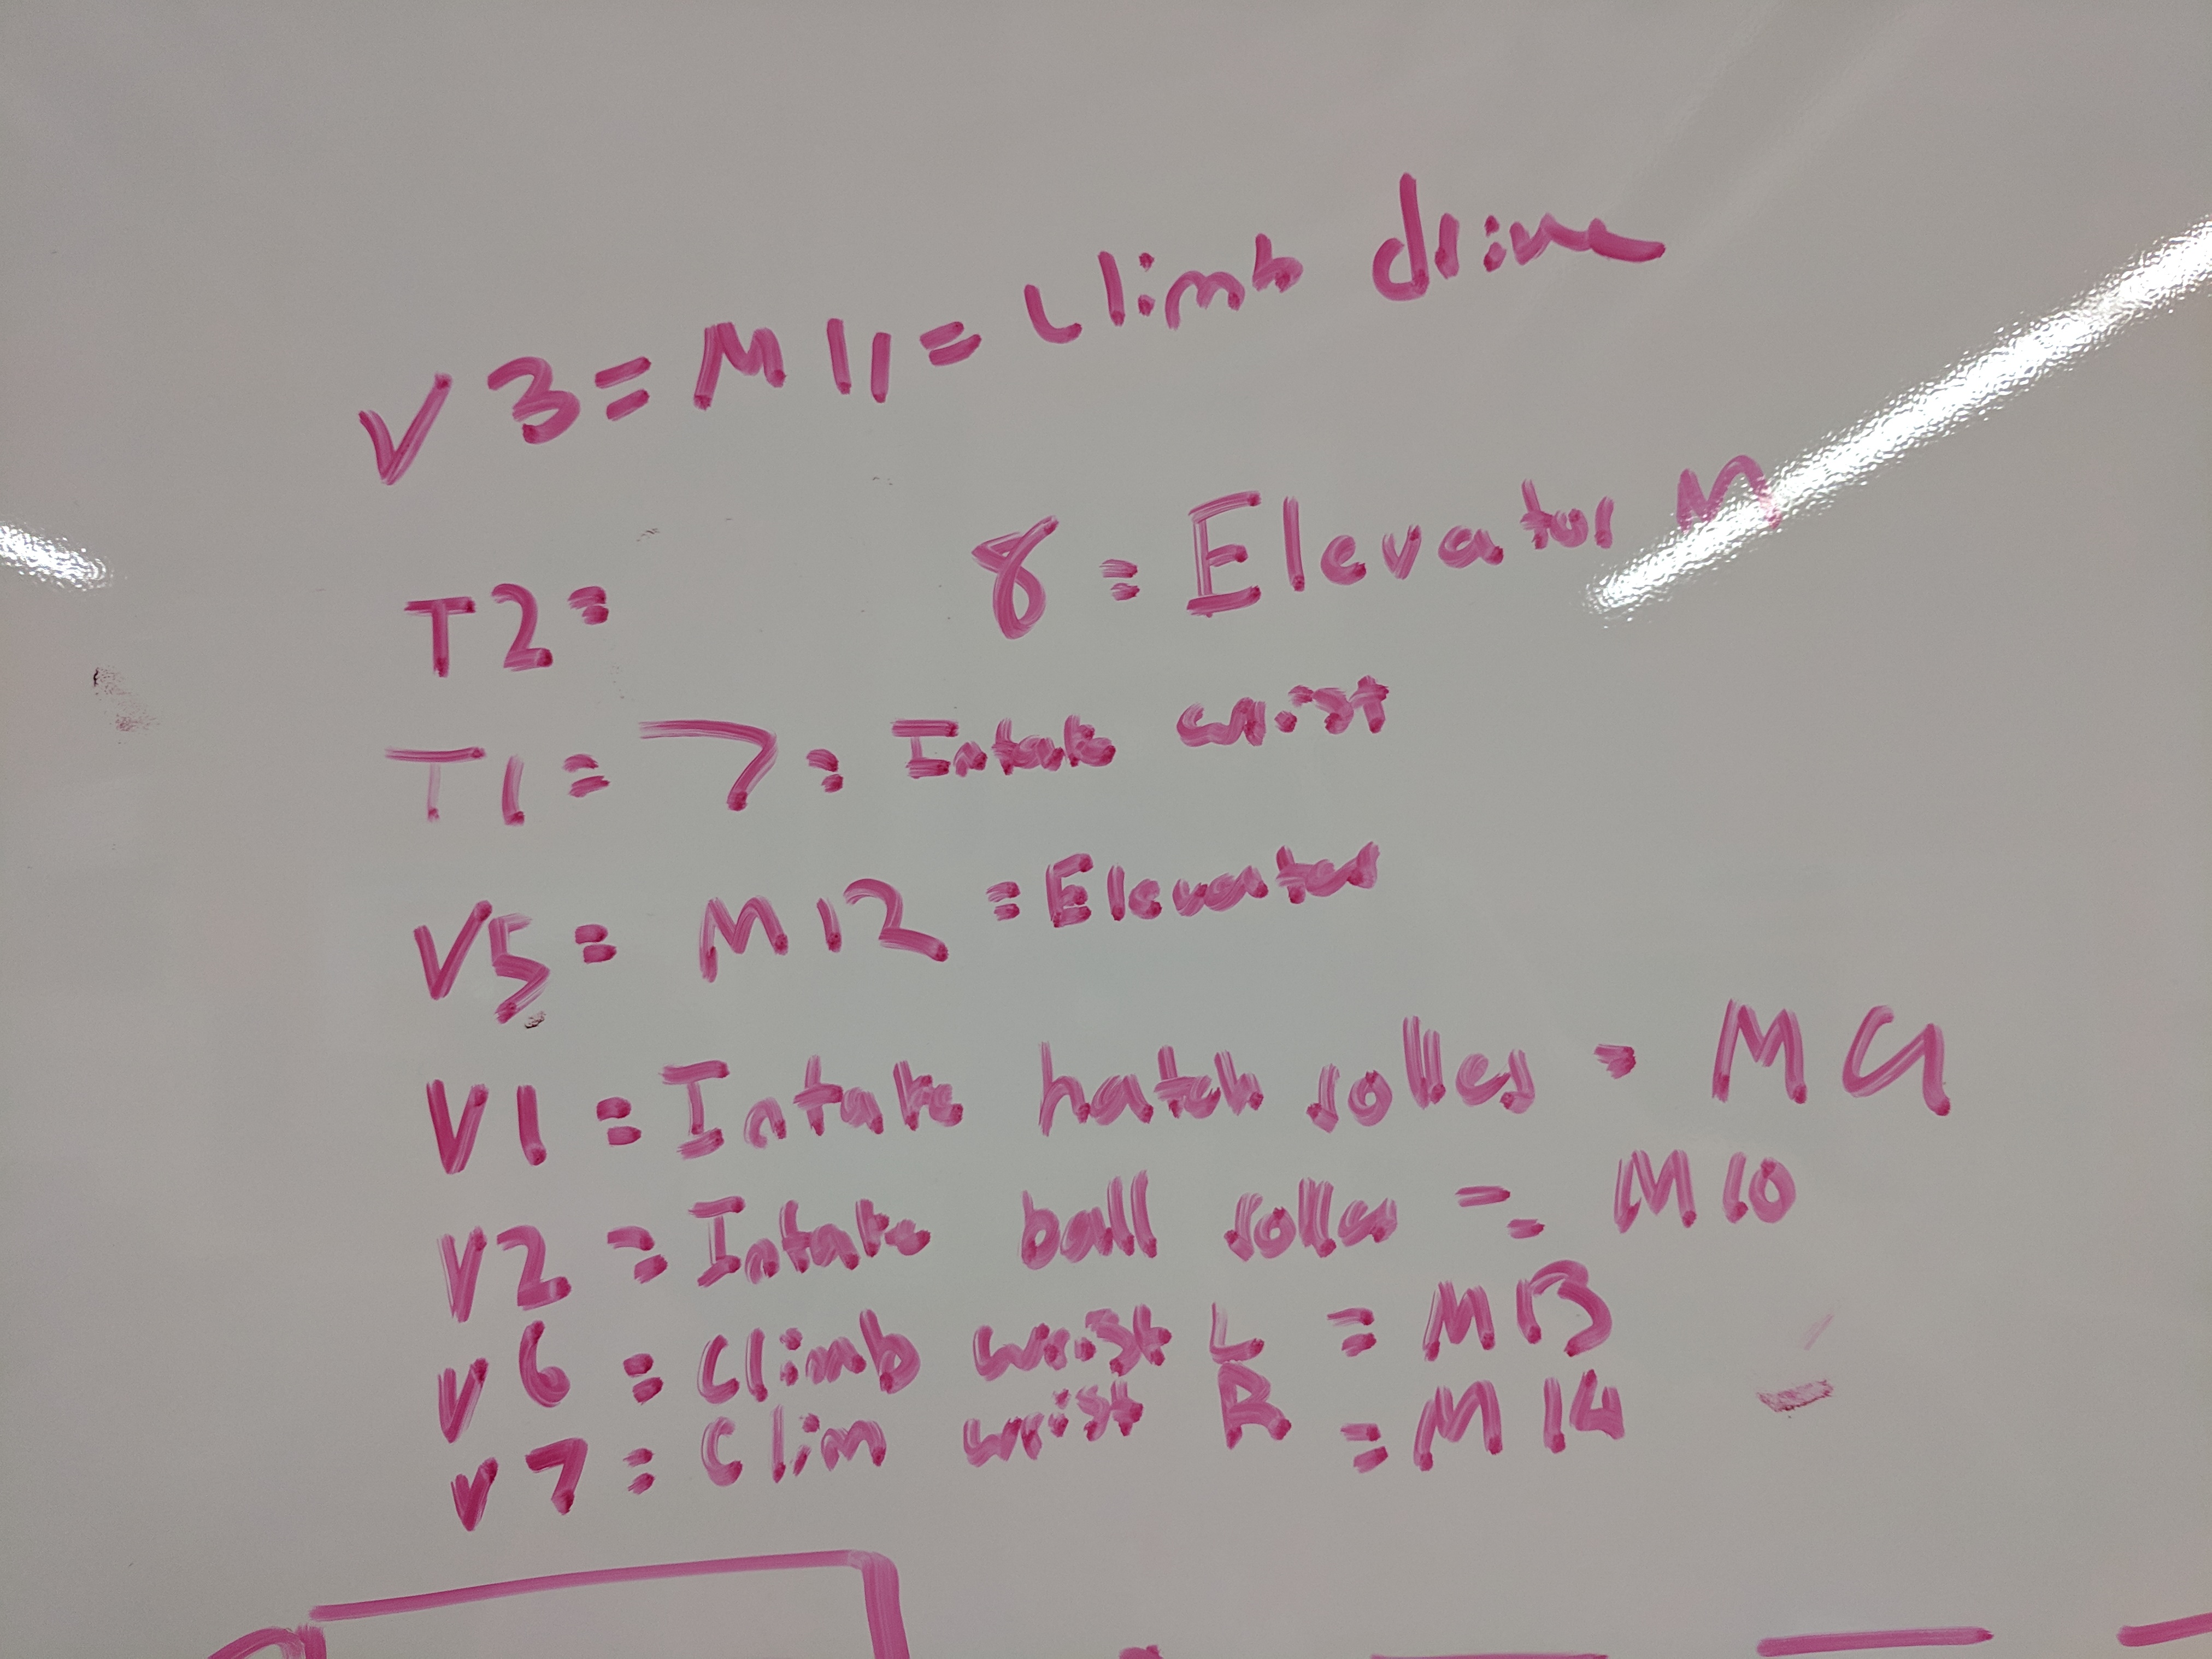 V3 = M11 = Climb drive
T2 = 8 = Elevator M
T1 = 7 = Intake wrist
V5 = M12 = Elevator
V1 = Intake hatch roller = M9
V2 = Intake ball roller = M10
V6 = Climb wrist L = M13
V7 = Clim wrist R = M14